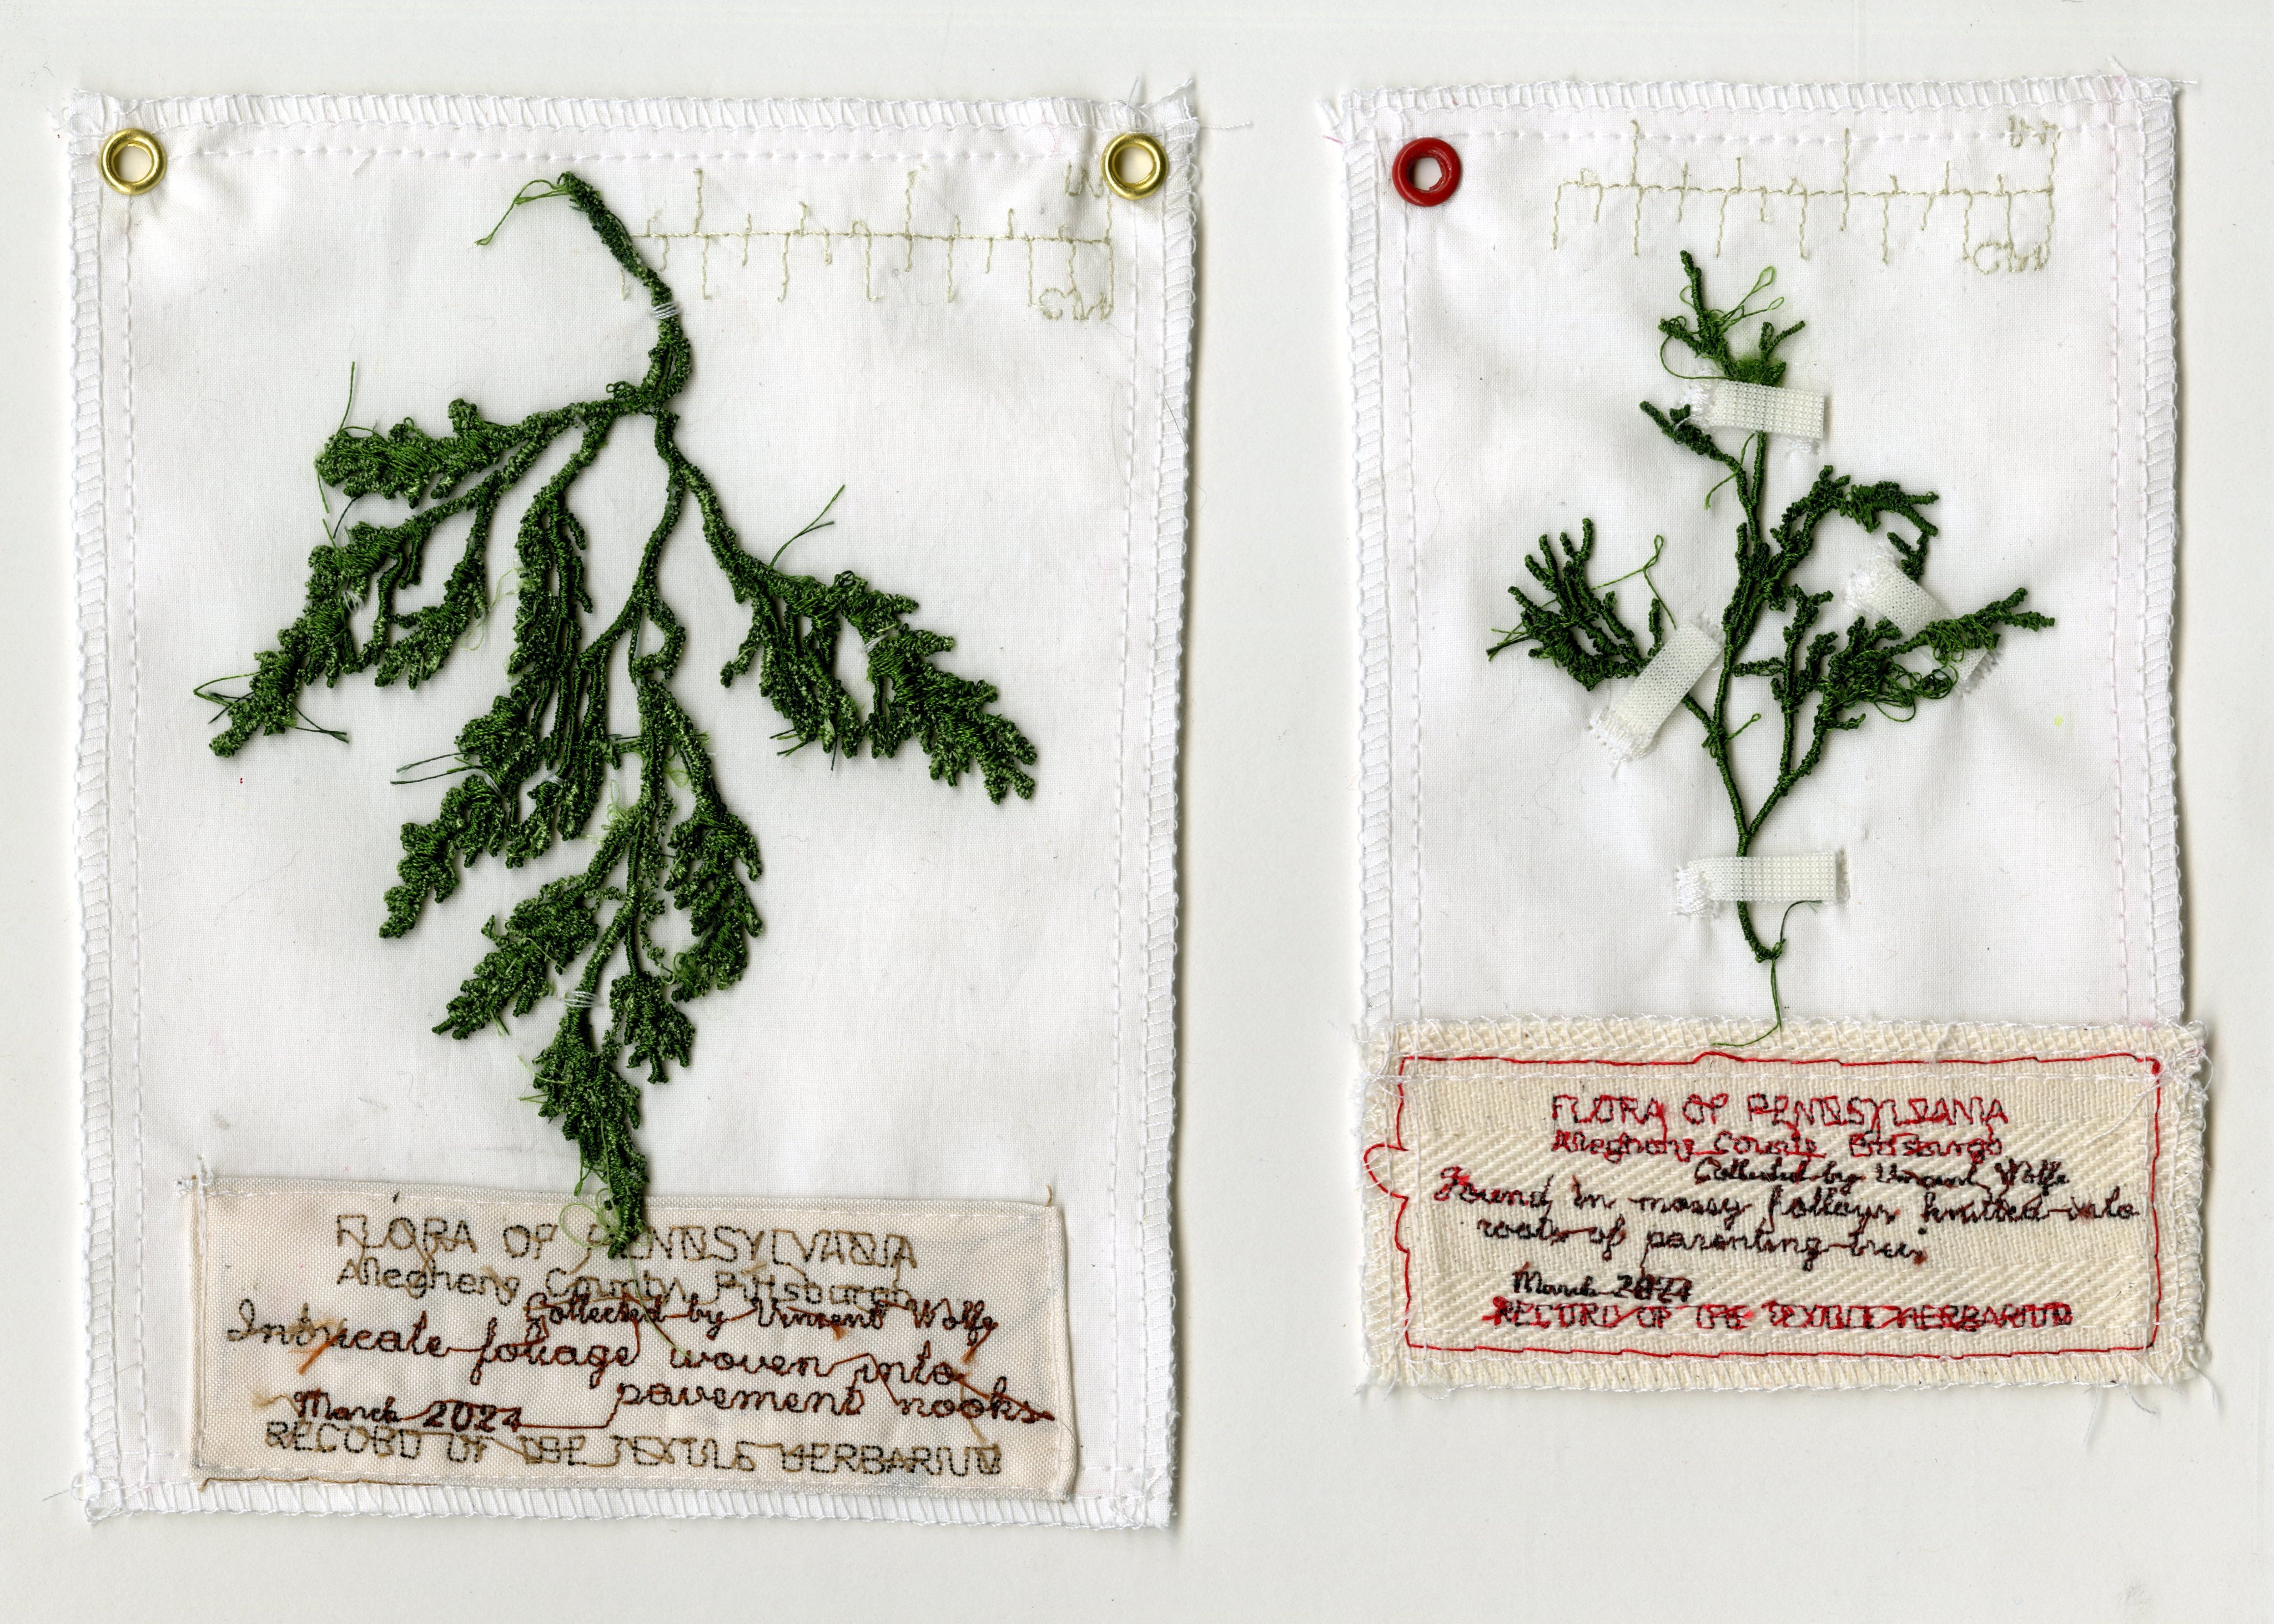 IN
CM
FLORA OF PENNSYLVANIA
Allegheny County, Pittsburgh
Collected by Vincent Wolfe
Intricate foliage woven into
pavement nooks
March 2024
RECORD OF THE TEXTILE HERBARIUM
CM
FLORA OF PENNSYLVANIA
Allegheny County Pittsburgh
Collected by Vincent Wolfe
Found in mossy valleys knitted into
roots of parenting trees
March 2024
RECORD OF THE TEXTILE HERBARIUM